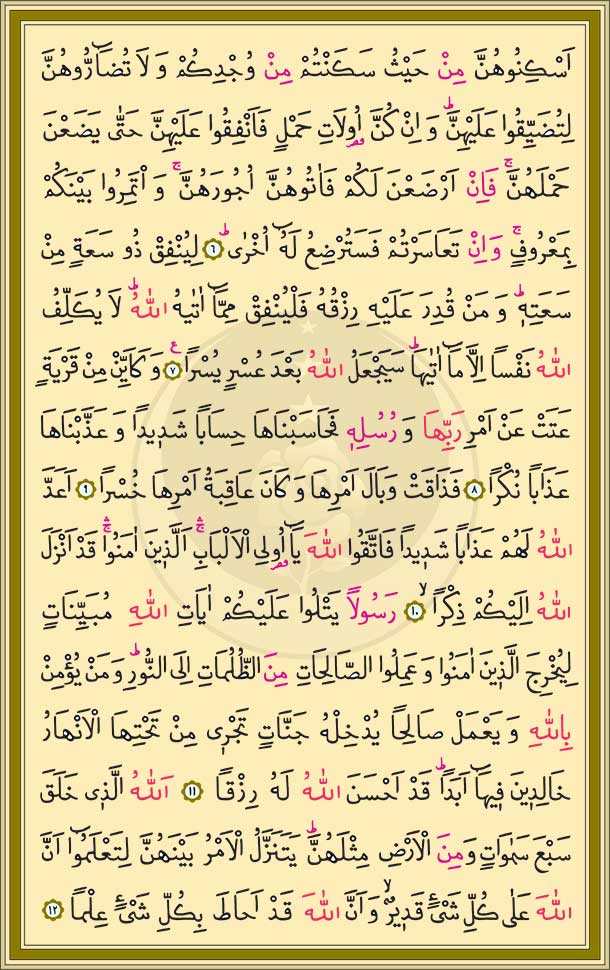 اَسْكِنُوهُنَّ مِنْ حَيْثُ سَكَنْتُمْ مِنْ وُجْدِكُمْ وَ لَا تُضَٓارُّوهُنَّ
لِتُضَيِّقُوا عَلَيْهِنَّۜ وَ اِنْ كُنَّ اُو۬لَاتِ حَمْلٍ فَاَنْفِقُوا عَلَيْهِنَّ حَتّٰى يَضَعْنَ
حَمْلَهُنَّۚ فَاِنْ اَرْضَعْنَ لَكُمْ فَاٰتُوهُنَّ اُجُورَهُنَّۚ وَ اْتَمِرُوا بَيْنَكُمْ
بِمَعْرُوفٍۚ وَ اِنْ تَعَاسَرْتُمْ فَسَتُرْضِعُ لَهُٓ اُخْرٰىۜ ﴿٦﴾ لِيُنْفِقْ ذُو سَعَةٍ مِنْ
سَعَتِه۪ۜ وَ مَنْ قُدِرَ عَلَيْهِ رِزْقُهُ فَلْيُنْفِقْ مِمَّٓا اٰتٰيهُ اللّٰهُۜ لَا يُكَلِّفُ
اللّٰهُ نَفْسًا اِلَّا مَٓا اٰتٰيهَاۜ سَيَجْعَلُ اللّٰهُ بَعْدَ عُسْرٍ يُسْرًا ࣖ ﴿٧﴾ وَ كَاَيِّنْ مِنْ قَرْيَةٍ
عَتَتْ عَنْ اَمْرِ رَبِّهَا وَ رُسُلِه۪ فَحَاسَبْنَاهَا حِسَابًا شَد۪يدًا وَ عَذَّبْنَاهَا
عَذَابًا نُكْرًا ﴿٨﴾ فَذَاقَتْ وَبَالَ اَمْرِهَا وَ كَانَ عَاقِبَةُ اَمْرِهَا خُسْرًا ﴿٩﴾ اَعَدَّ
اللّٰهُ لَهُمْ عَذَابًا شَد۪يدًا فَاتَّقُوا اللّٰهَ يَٓا اُو۬لِى الْاَلْبَابِۚۛ اَلَّذ۪ينَ اٰمَنُواۚۛ قَدْ اَنْزَلَ
اللّٰهُ اِلَيْكُمْ ذِكْرًاۙ ﴿١٠﴾ رَسُولًا يَتْلُوا عَلَيْكُمْ اٰيَاتِ اللّٰهِ مُبَيِّنَاتٍ
لِيُخْرِجَ الَّذ۪ينَ اٰمَنُوا وَ عَمِلُوا الصَّالِحَاتِ مِنَ الظُّلُمَاتِ اِلَى النُّورِۜ وَ مَنْ يُؤْمِنْ
بِاللّٰهِ وَ يَعْمَلْ صَالِحًا يُدْخِلْهُ جَنَّاتٍ تَجْر۪ى مِنْ تَحْتِهَا الْاَنْهَارُ
خَالِد۪ينَ ف۪يهَٓا اَبَدًاۜ قَدْ اَحْسَنَ اللّٰهُ لَهُ رِزْقًا ﴿١١﴾ اَللّٰهُ الَّذ۪ى خَلَقَ
سَبْعَ سَمٰوَاتٍ وَ مِنَ الْاَرْضِ مِثْلَهُنَّۜ يَتَنَزَّلُ الْاَمْرُ بَيْنَهُنَّ لِتَعْلَمُٓوا اَنَّ
اللّٰهَ عَلٰى كُلِّ شَىْءٍ قَد۪يرٌۙ وَ اَنَّ اللّٰهَ قَدْ اَحَاطَ بِكُلِّ شَىْءٍ عِلْمًا ﴿١٢﴾